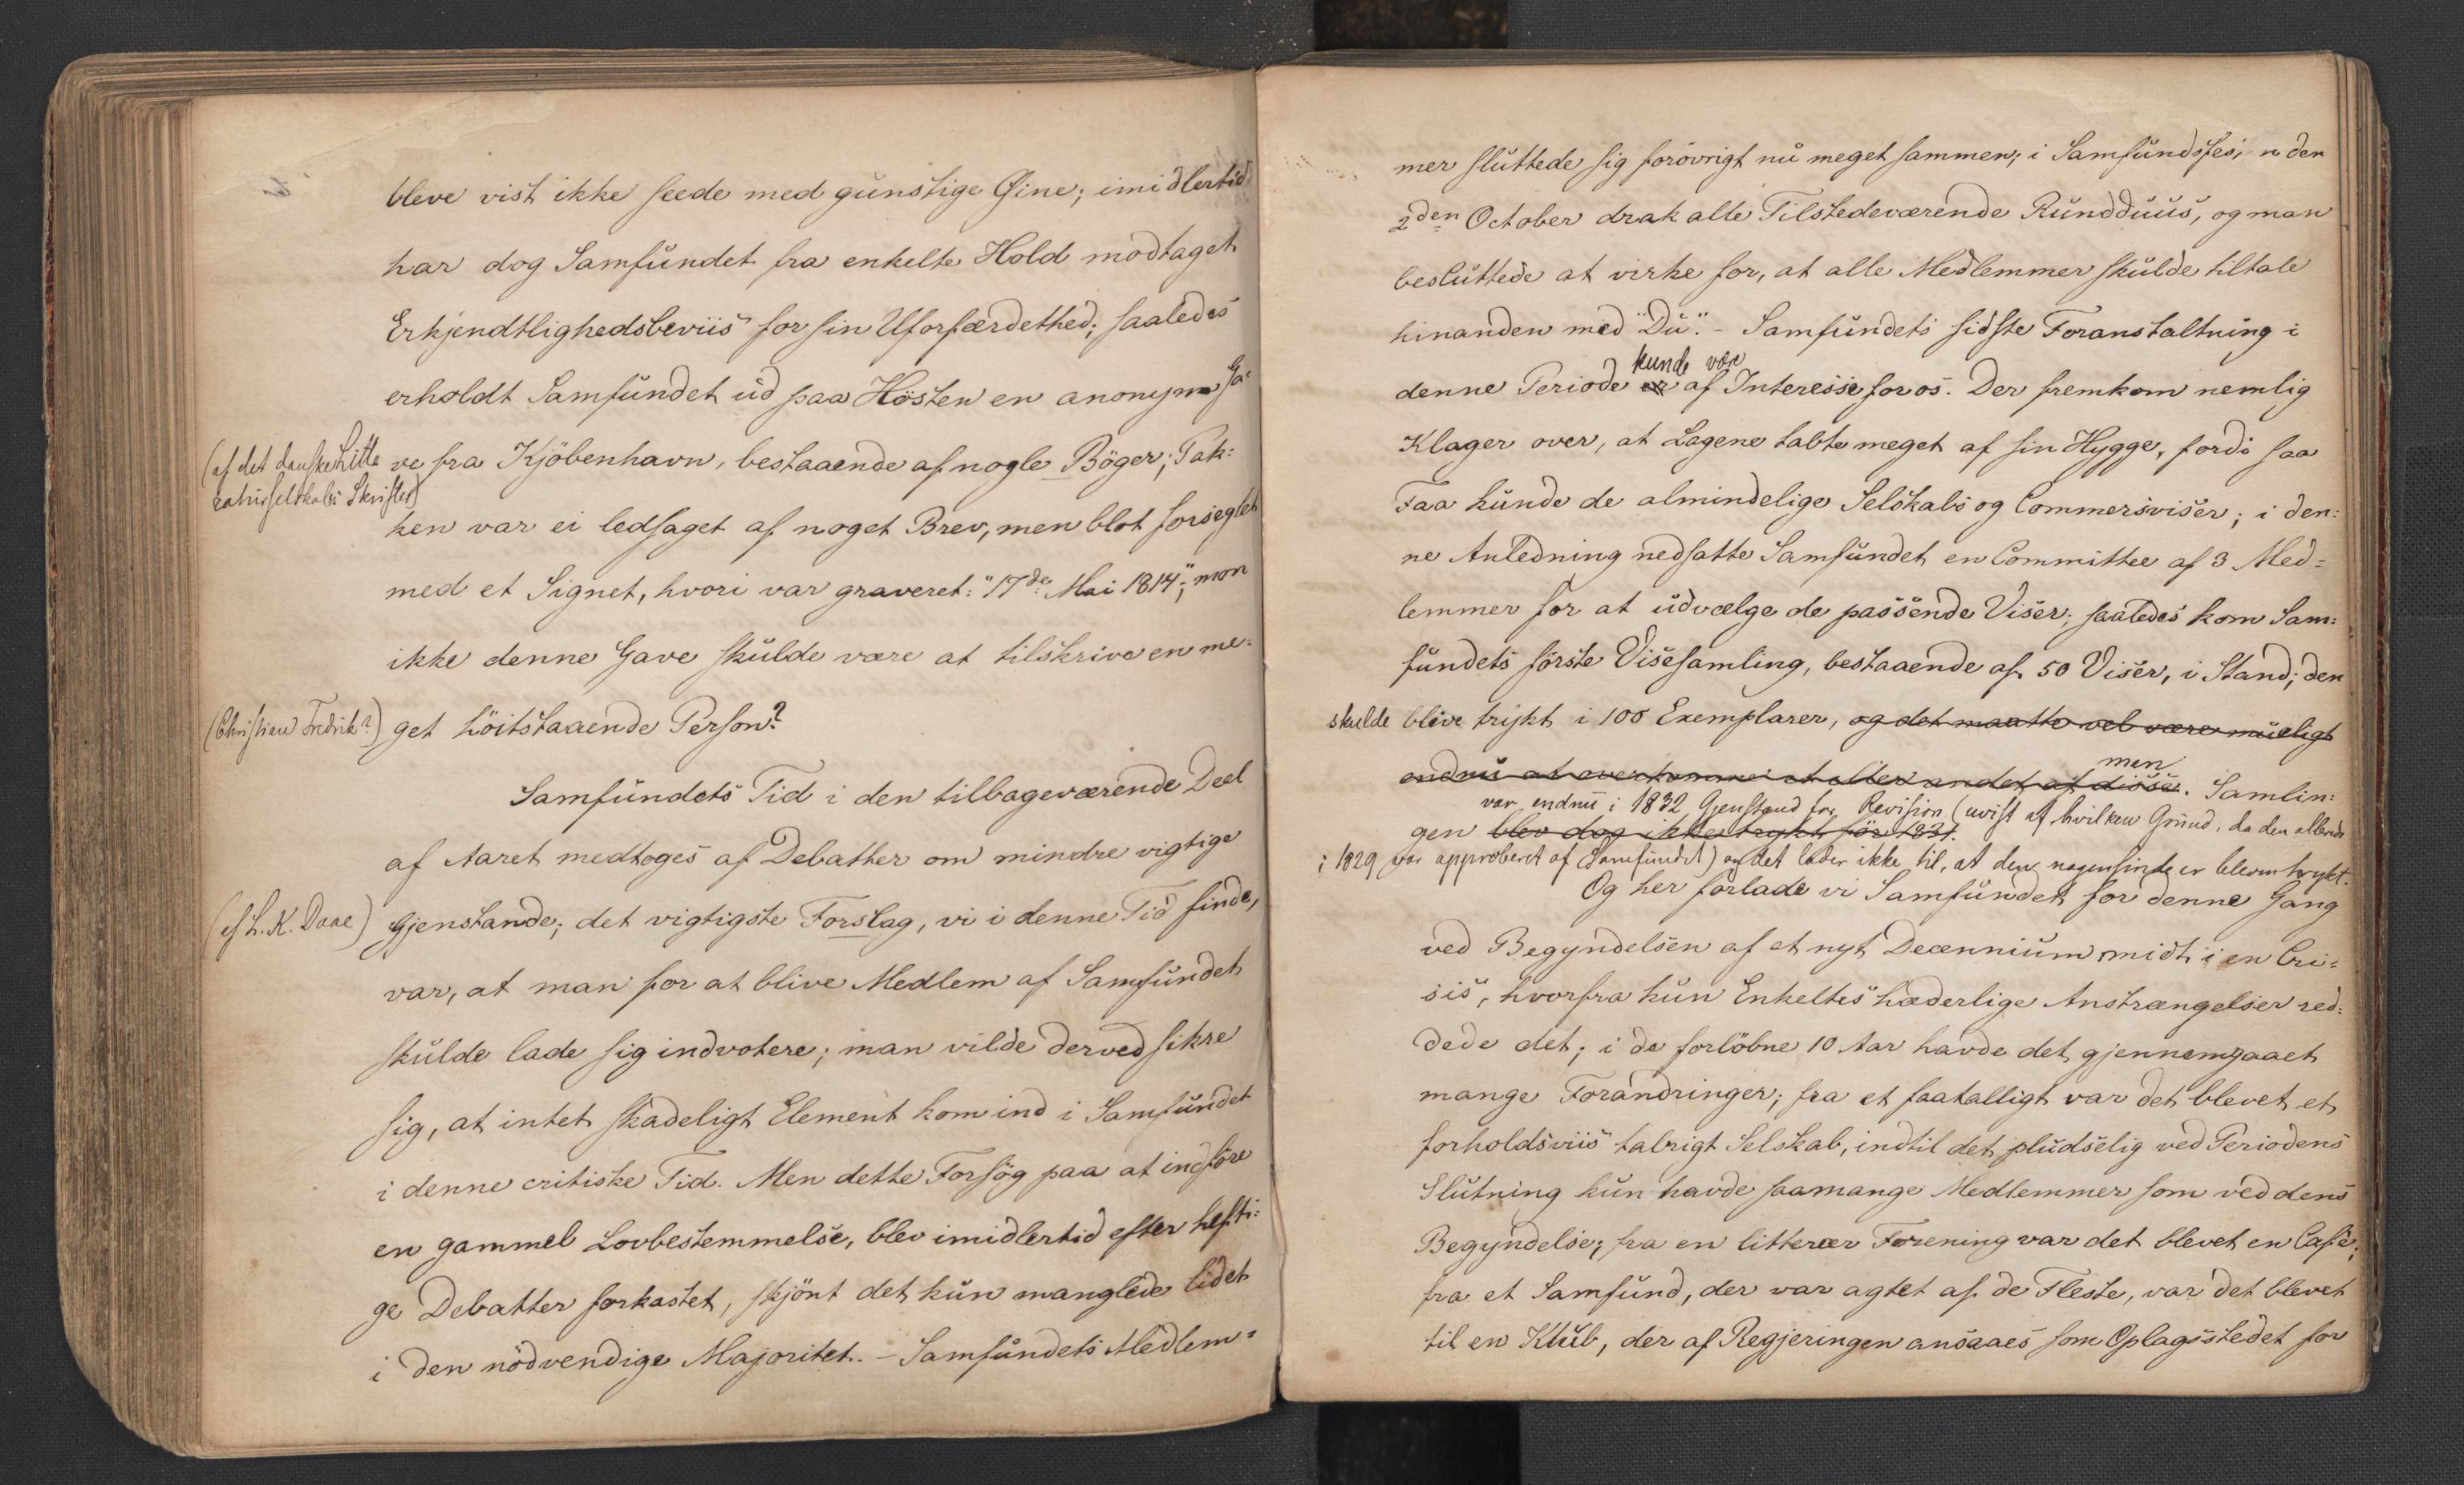 bleve vist ikke seede med gunstige Øine; imidlertid
har dog Samfundet fra enkelte Hold modtaget
Erkjendtlighedsbeviis for sin Uforfærdethed; saaledes
erholdt Samfundet ud paa Hösten en anonym Ga-
(af det danske Litte
ratürselskabs Skrifter)
ve fra Kjöbenhavn, bestaaende af nogle Böger; Pak-
ken var ei ledsaget af noget Brev, men blot forseglet
med et Signet, hvori var graveret: "17de Mai 1814"; mon
ikke denne Gave skulde være at tilskrive en me-
(Christian Fredrik?) get höitstaaende Person?
Samfundets Tid i den tilbageværende Deel
af Aaret medtoges af Debatter om mindre vigtige
(af L. K. Daae) Gjenstande; det vigtigste Forslag, vi i denne Tid finde,
var, at man for at blive Medlem af Samfundet
skulde lade sig indvotere; man vilde derved sikre
sig, at intet skadeligt Element kom ind i Samfundet
i denne critiske Tid. Men dette Forsög paa at indföre
en gammel Lovbestemmelse, blev imidlertid efter hefti-
ge Debatter forkastet, skjönt det kun manglede lidet
i den nödvendige Majoritet. - Samfundets Medlem-
mer sluttede sig forövrigt nu meget sammen; i Samfundsfesten den
2den October drak alle Tilstedeværende Rundduus, og man
besluttede at virke for, at alle Medlemmer skulde tiltale
hinanden med "Du". - Samfundets sidste Foranstaltning i
kunde være
denne Periode er af Interesse for os. Der fremkom nemlig
Klager over, at Lagene tabte meget af sin Hygge, fordi saa
Faa kunde de almindelige Selskabs og Commersviser; i den-
ne Anledning nedsatte Samfundet en Committee af 3 Med-
lemmer for at udvælge de passende Viser; saaledes kom Sam-
fundets förste Visesamling, bestaaende af 50 Viser, i Stand; den
skulde blive trykt i 100 Exemplarer, og det maatte vel være mueligt
men
endnu at overkomme et eller andet af disse. Samlin-
var endnu i 1832 Gjenstand for Revision (uvist af hvilken Grund, da den allerede
gen blev dog ikke trykt för 1831.
i 1829 var approberet af Samfundet) og det lader ikke til, at den nogensinde er bleven trykt.
Og her forlade vi Samfundet for denne Gang
ved Begyndelsen af et nyt Decennium midt i en Cri-
sis, hvorfra kun Enkeltes hæderlige Anstrængelser red-
dede det; i de forlöbne 10 Aar havde det gjennemgaaet
mange Forandringer; fra et faatalligt var det blevet et
forholdsviis talrigt Selskab, indtil det pludselig ved Periodens
Slutning kun havde saamange Medlemmer som ved dens
Begyndelse; fra en litterær Forening var det blevet en Café;
fra et Samfund, der var agtet af de Fleste, var det blevet
til en Klub, der af Regjeringen ansaaes som Oplagsstedet for